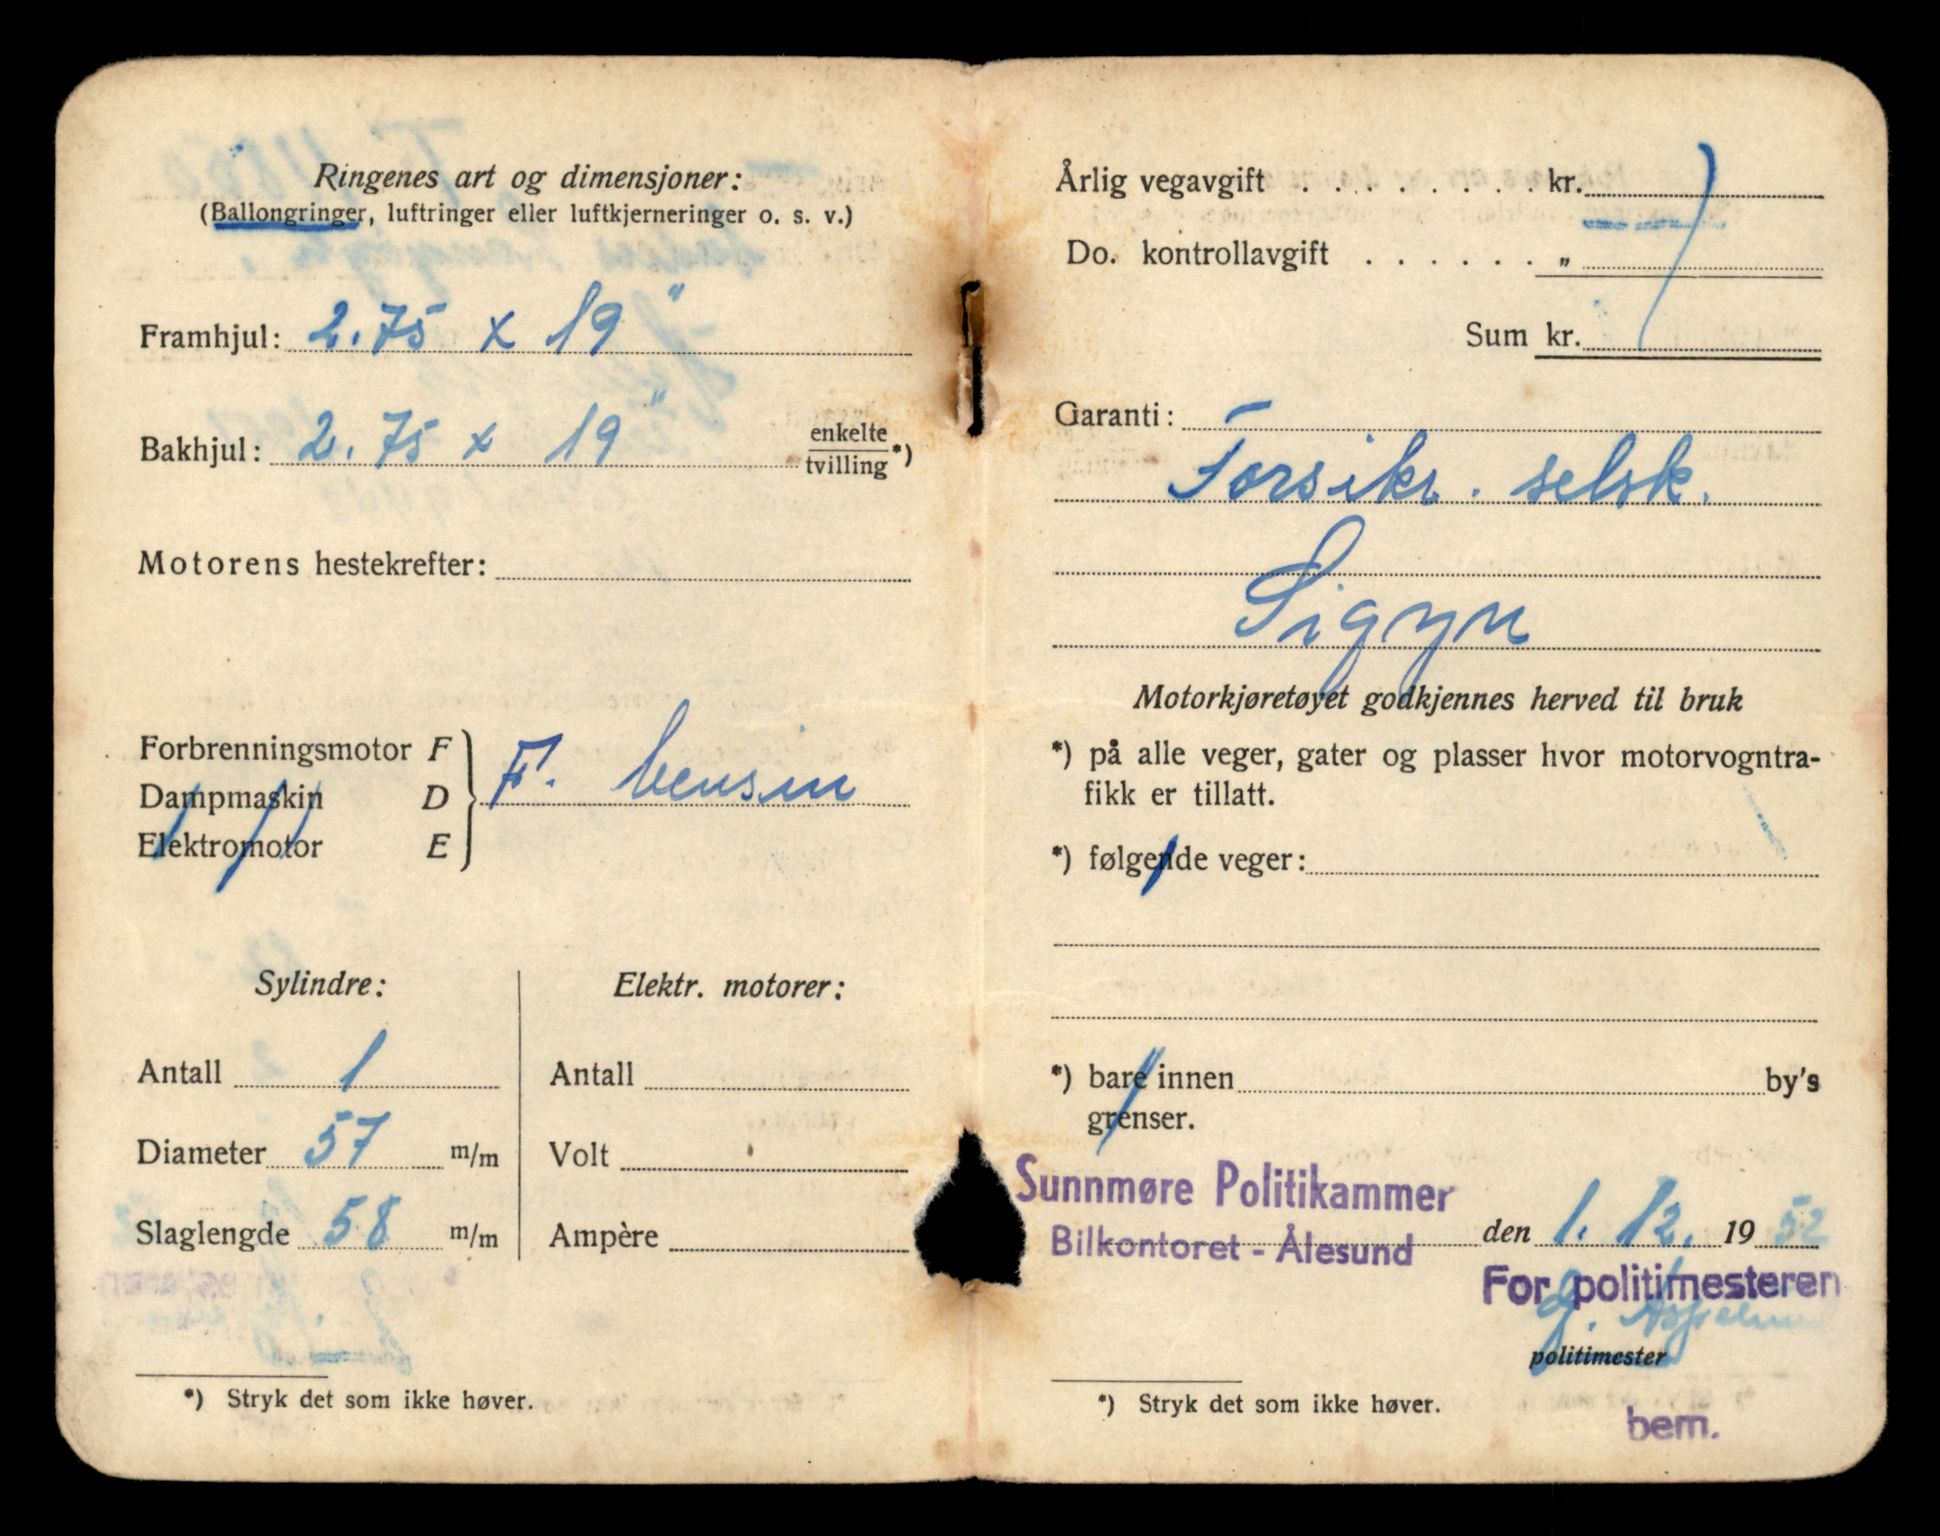 Ringenes art og dimensjoner:
(Ballongringer, luftringer eller luftkjerneringer o. s. v.)
Framhjul: 2.75 x 19"
Bakhjul: 2.75 x 19" enkelte
tvilling *)
Motorens hestekrefter:
Forbrenningsmotor F
Dampmaskin D F. bensin
Elektromotor E
Sylindre:
Antall 1
Diameter 57 m/m
Slaglengde 58 m/m
Elektr. motorer:
Antall
Volt
Ampère
*) Stryk det som ikke høver.
Årlig vegavgift . . . . . . . . kr.
Do. kontrollavgift . . . . . . "
Sum kr.
Garanti:
Forsikr. selsk.
Sigyn
Motorkjøretøyet godkjennes herved til bruk
*) på alle veger, gater og plasser hvor motorvogntra-
fikk er tillatt.
*) følgende veger:
*) bare innen by's
grenser.
Sunnmøre Politikammer
Bilkontoret - Ålesund den 1. 12. 1952
For politimesteren
politimester
*) Stryk det som ikke høver.
bem.